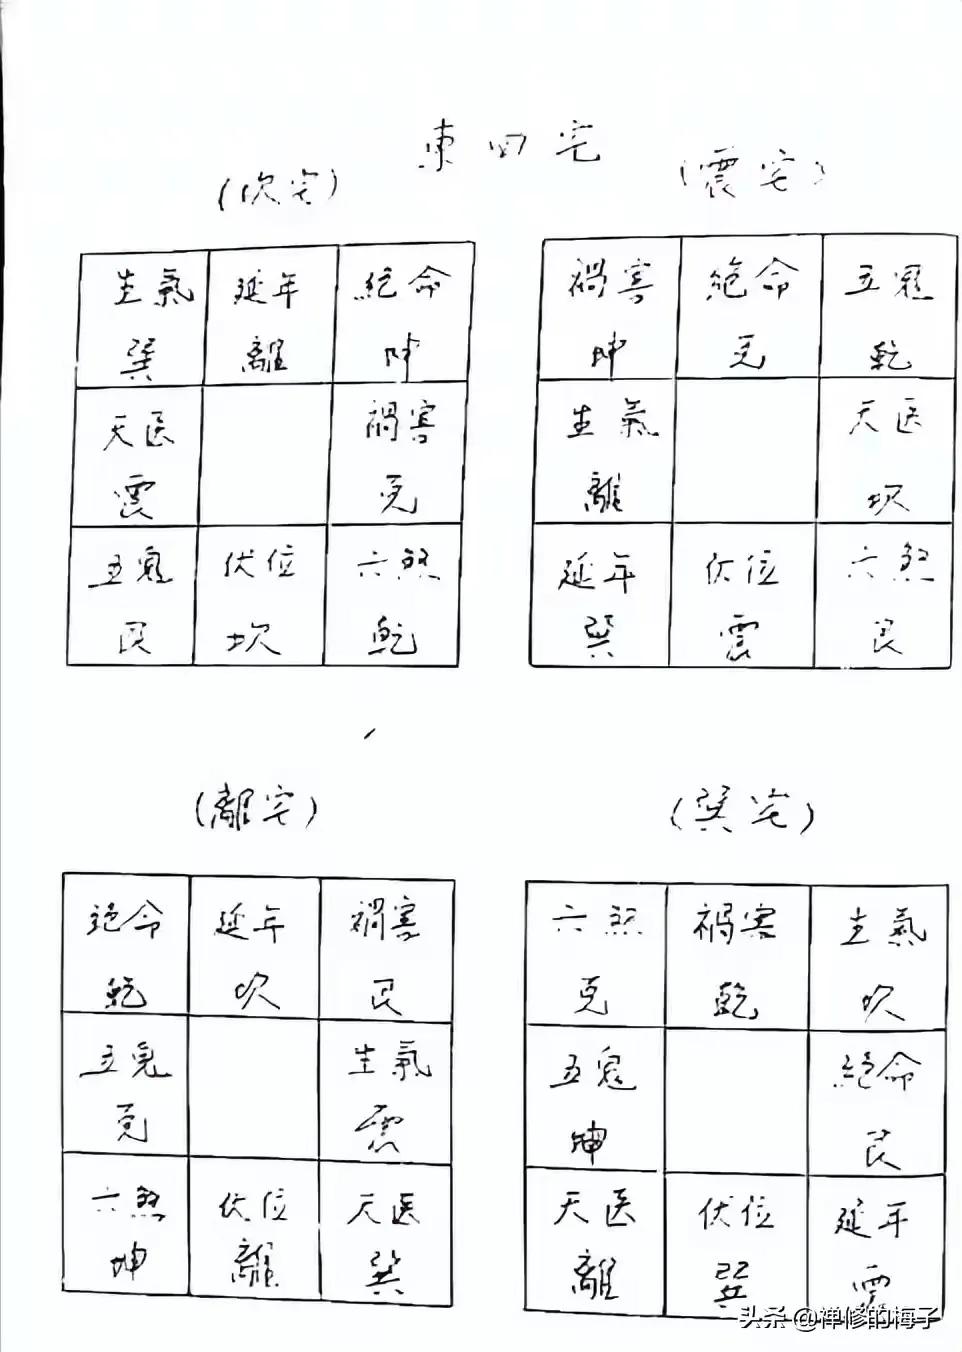 東四宅
(坎宅)
(震宅)
生氣 延年 絕命
巽 離 坤
天医 禍害
震 兑
五鬼 伏位 六煞
艮 坎 乾
禍害 絕命 五鬼
坤 兑 乾
生氣 天医
離 坎
延年 伏位 六煞
巽 震 艮
(離宅)
(巽宅)
絕命 延年 禍害
乾 坎 艮
五鬼 生氣
兑 震
六煞 伏位 天医
坤 離 巽
六煞 禍害 生氣
兑 乾 坎
五鬼 絕命
坤 艮
天医 伏位 延年
離 巽 震
头条 @禅修的梅子